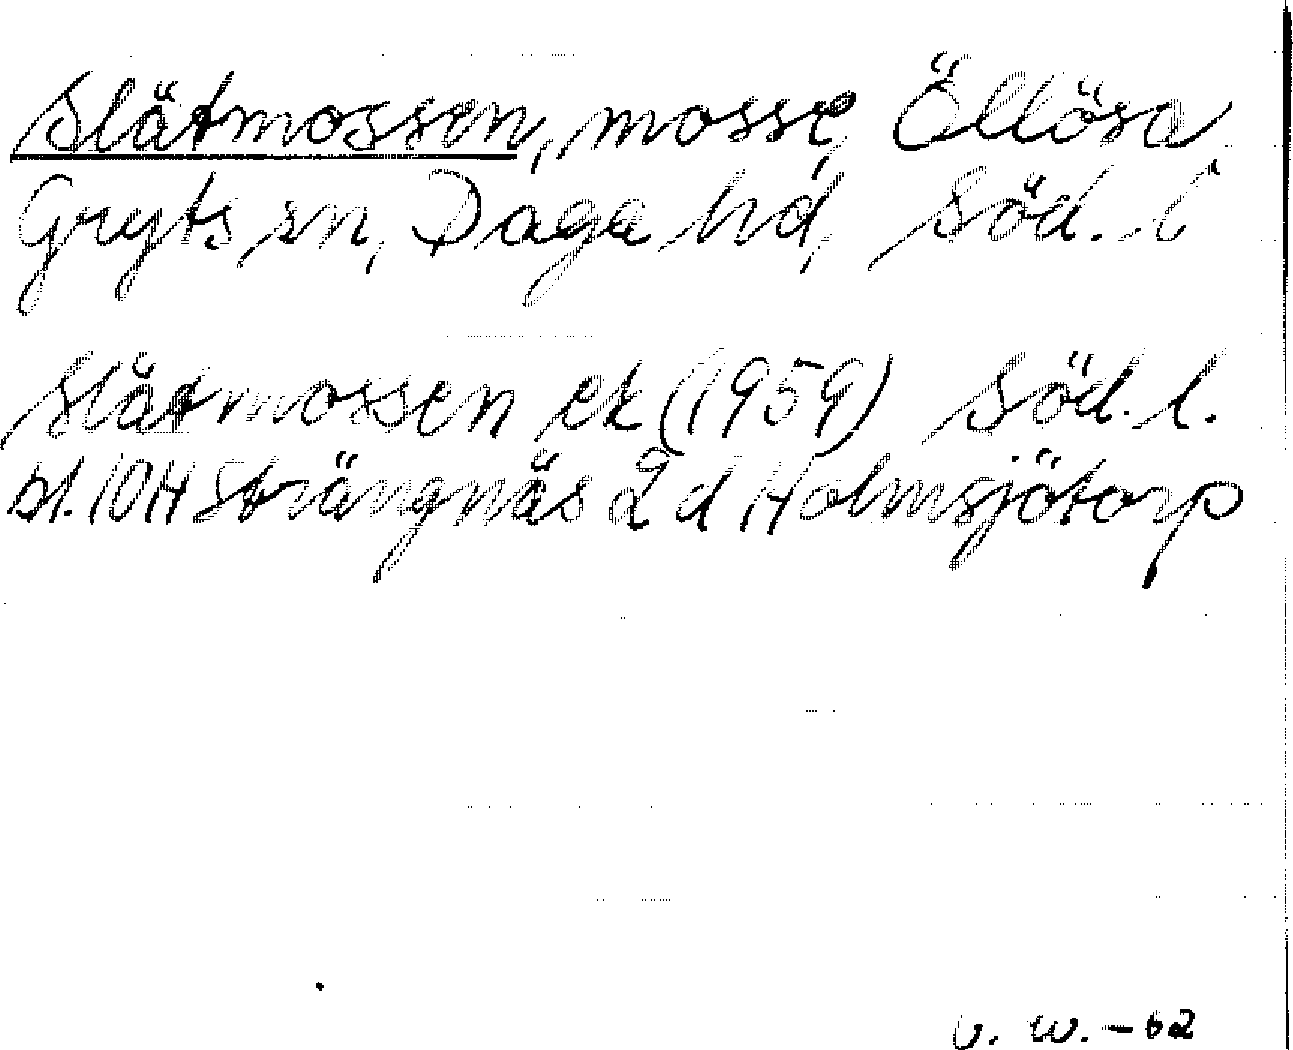 Slätmossen, mosse, Öllösa
Gryts sn, Daga hd, Söd. l
Slåtmossen ek (1959) Söd. l.
bl. 10H Strängnäs 2 d Holmsjötorp
U. W. -62